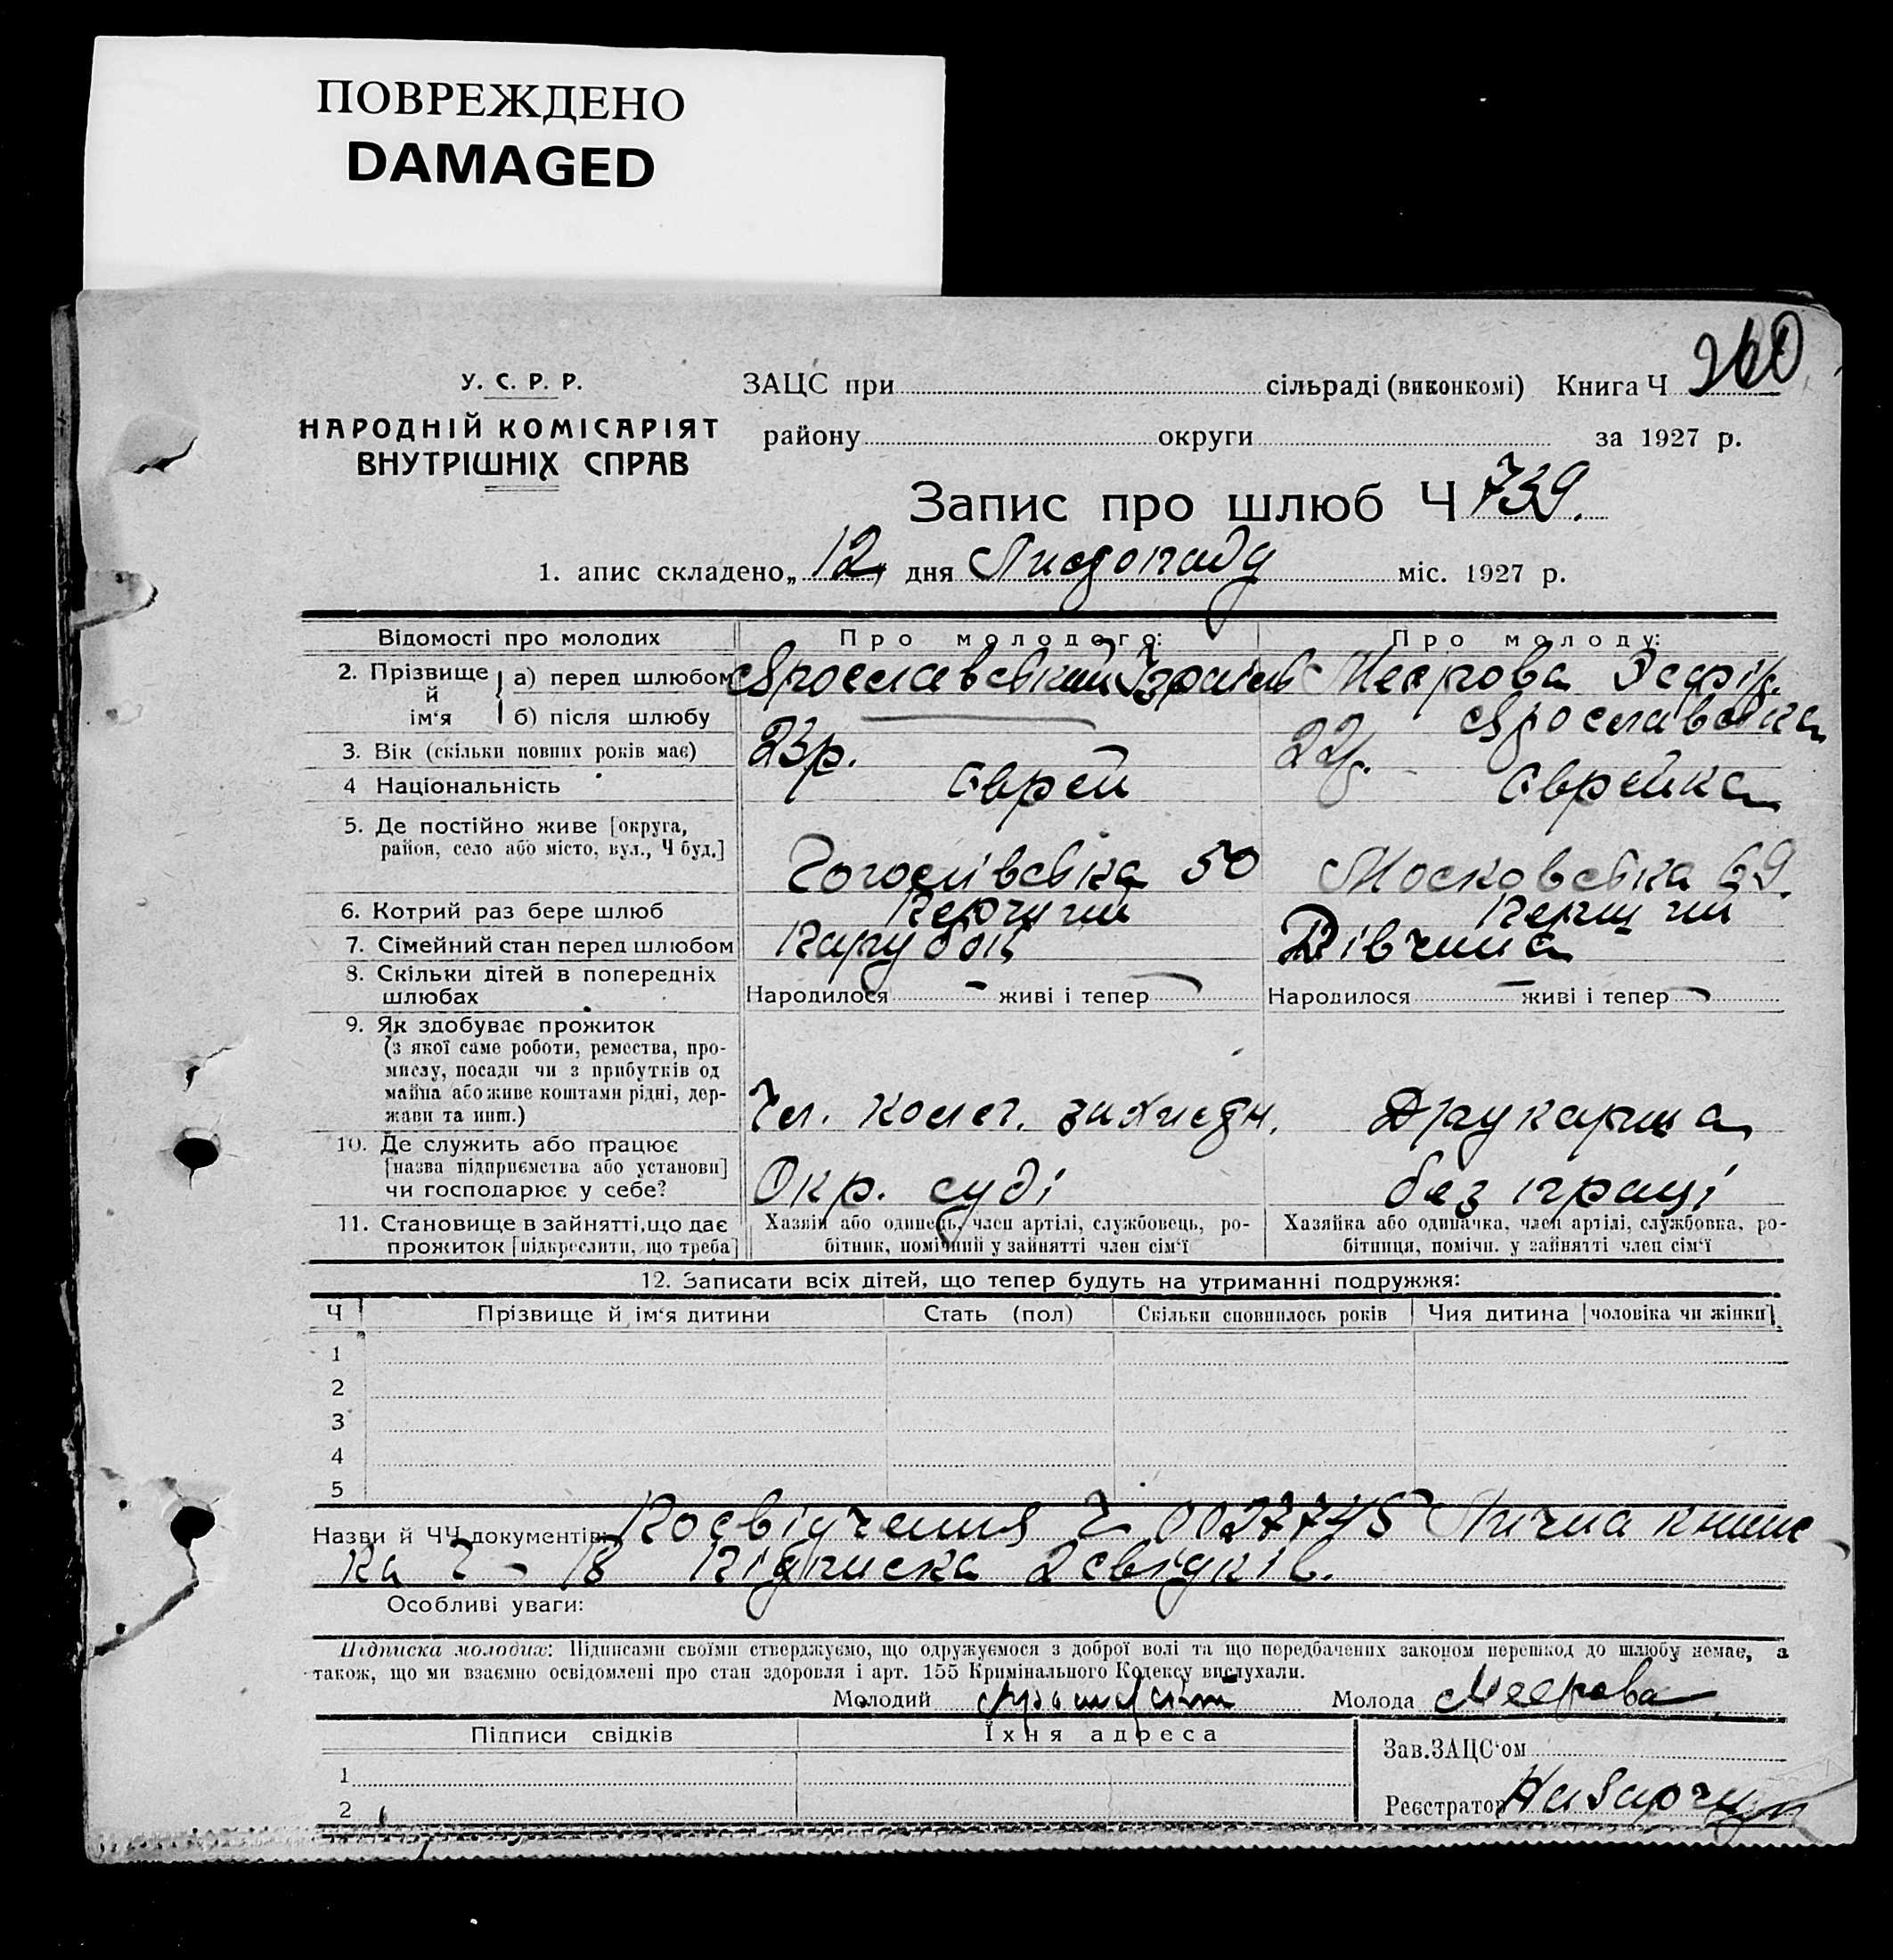 ПОВРЕЖДЕНО
DAMAGED
260
У. С. Р. Р.
НАРОДНІЙ КОМІСАРІЯТ
ВНУТРІШНІХ СПРАВ
ЗАЦС при сільраді (виконкомі) Книга Ч
району округи за 1927 р.
Запис про шлюб Ч 739.
1. апис складено „ 12 дня Листопаду міс. 1927 р.
Відомості про молодих Про молодого: Про молоду:
2. Прізвище й ім‘я а) перед шлюбом Ярославський Ізраіль Меєрова Эсфір
б) після шлюбу Ярославська
3. Вік (скільки повних років має) 23р. 22р.
4 Національність Єврей Єврейка
5. Де постійно живе [округа,
район, село або місто, вул., Ч буд.] Гоголівська 50 Московська 69.
6. Котрий раз бере шлюб Перший Перший
7. Сімейний стан перед шлюбом Парубок Дівчина
8. Скільки дітей в попередніх
шлюбах Народилося - живі і тепер - Народилося - живі і тепер -
9. Як здобуває прожиток
(з якої саме роботи, ремества, про-
мислу, посади чи з прибутків од
майна або живе коштами рідні, дер-
жави та инш.) Чл. колег. захистн. Друкарша
10. Де служить або працює
[назва підприємства або установи]
чи господарює у себе? Окр. суді без праці
11. Становище в зайнятті, що дає
прожиток [підкреслити, що треба]
Хазяїн або одинець, член артілі, службовець, ро-
бітник, помічний у зайнятті член сім‘ї
Хазяйка або одиначка, член артілі, службовка, ро-
бітниця, помічн. у зайнятті член сім‘ї
12. Записати всіх дітей, що тепер будуть на утриманні подружжя:
Ч Прізвище й ім‘я дитини Стать (пол) Скільки сповнилось років Чия дитина [чоловіка чи жінки]
1
2
3
4
5
Назви й ЧЧ документів: Посвідчення Ч 0027745 Лічна книж
ка Ч - 18 Підписка 2 свідків.
Особливі уваги:
Підписка молодих: Підписами своїми стверджуємо, що одружуємося з доброї волі та що передбачених законом перешкод до шлюбу немає, а
також, що ми взаємно освідомлені про стан здоровля і арт. 155 Кримінального Кодексу вислухали.
Молодий Молода Меерова
Підписи свідків Їхня адреса
Зав.ЗАЦС‘ом
1
2
Реєстратор Назарчук